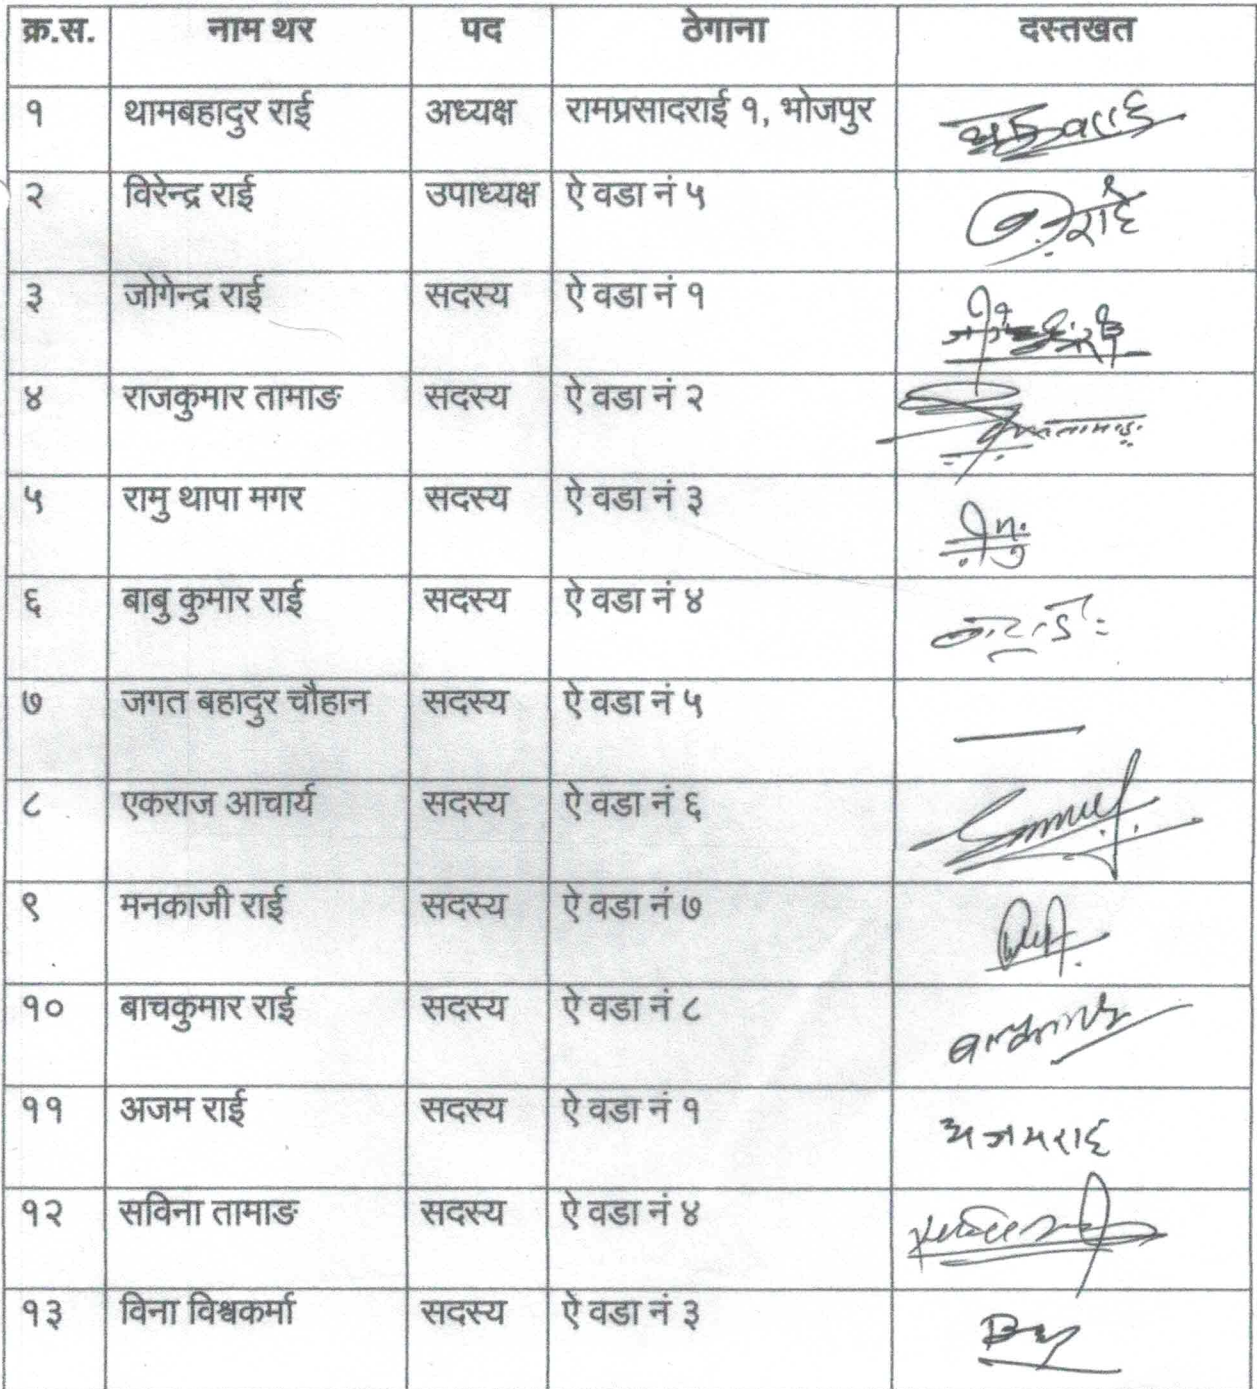 क्र.स. नाम थर पद ठेगाना दस्तखत
१ थामबहादुर राई अध्यक्ष रामप्रसादराई १, भोजपुर
२ विरेन्द्र राई उपाध्यक्ष ऐ वडा नं ५
३ जोगेन्द्र राई सदस्य ऐ वडा नं १
४ राजकुमार तामाङ सदस्य ऐ वडा नं २
५ रामु थापा मगर सदस्य ऐ वडा नं ३
६ बाबु कुमार राई सदस्य ऐ वडा नं ४
७ जगत बहादुर चौहान सदस्य ऐ वडा नं ५
८ एकराज आचार्य सदस्य ऐ वडा नं ६
९ मनकाजी राई सदस्य ऐ वडा नं ७
१० बाचकुमार राई सदस्य ऐ वडा नं ८
११ अजम राई सदस्य ऐ वडा नं १ अजमराई
१२ सविना तामाङ सदस्य ऐ वडा नं ४
१३ विना विश्वकर्मा सदस्य ऐ वडा नं ३